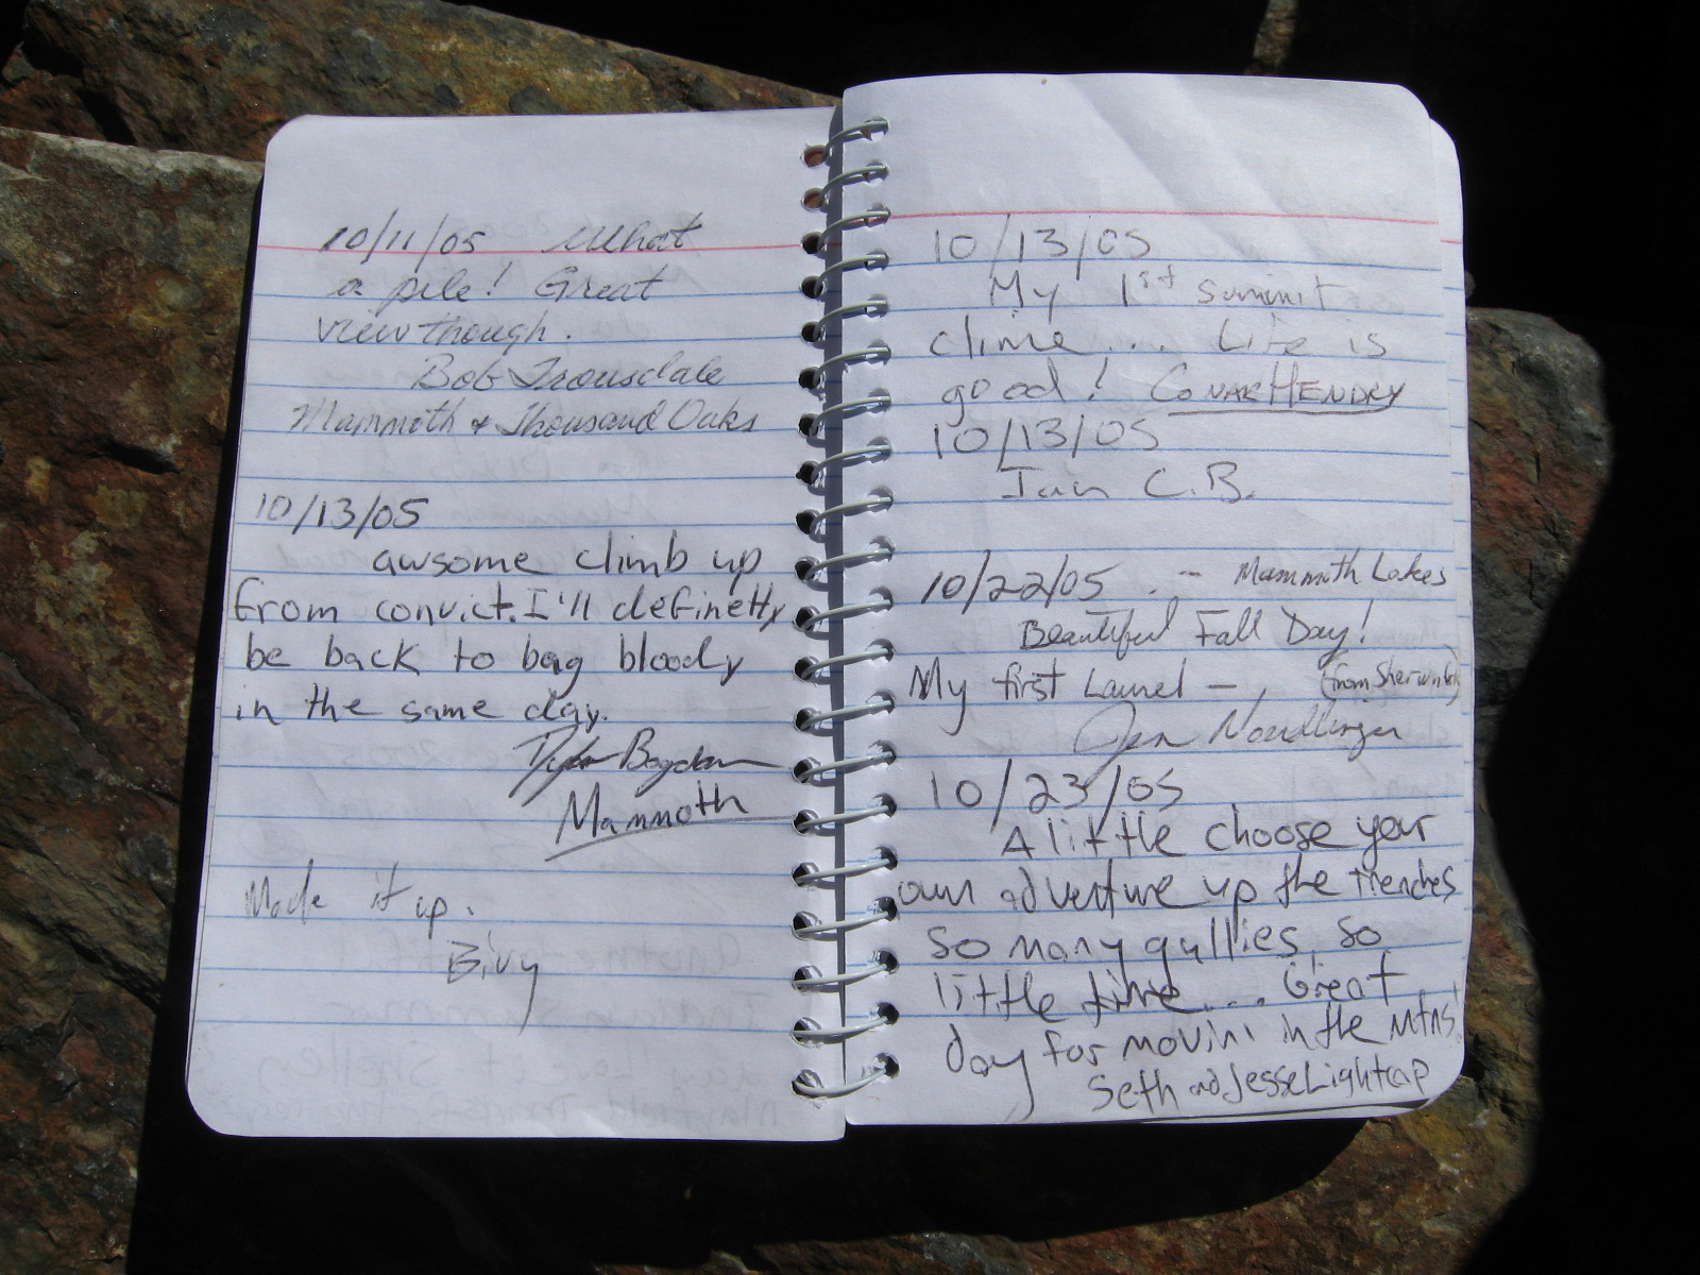 10/11/05 What
a pile! Great
view though.
Bob Trousdale
Mammoth & Thousand Oaks
10/13/05
awsome climb up
from convict. I'll definetly
be back to bag bloody
in the same day.
Mammoth
Made it up.
Bivy
10/13/05
My 1st summit
clime... Life is
good! Conar Hendry
10/13/05
Iain C.B.
10/22/05 - Mammoth Lakes
Beautiful Fall Day!
My first Laurel - (from Sherwin
Jen Nordlinger
10/23/05
A little choose your
own adventure up the trenches
so many gullies, so
little time... Great
day for movin in the Mtns!
Seth and Jesse Lightcap